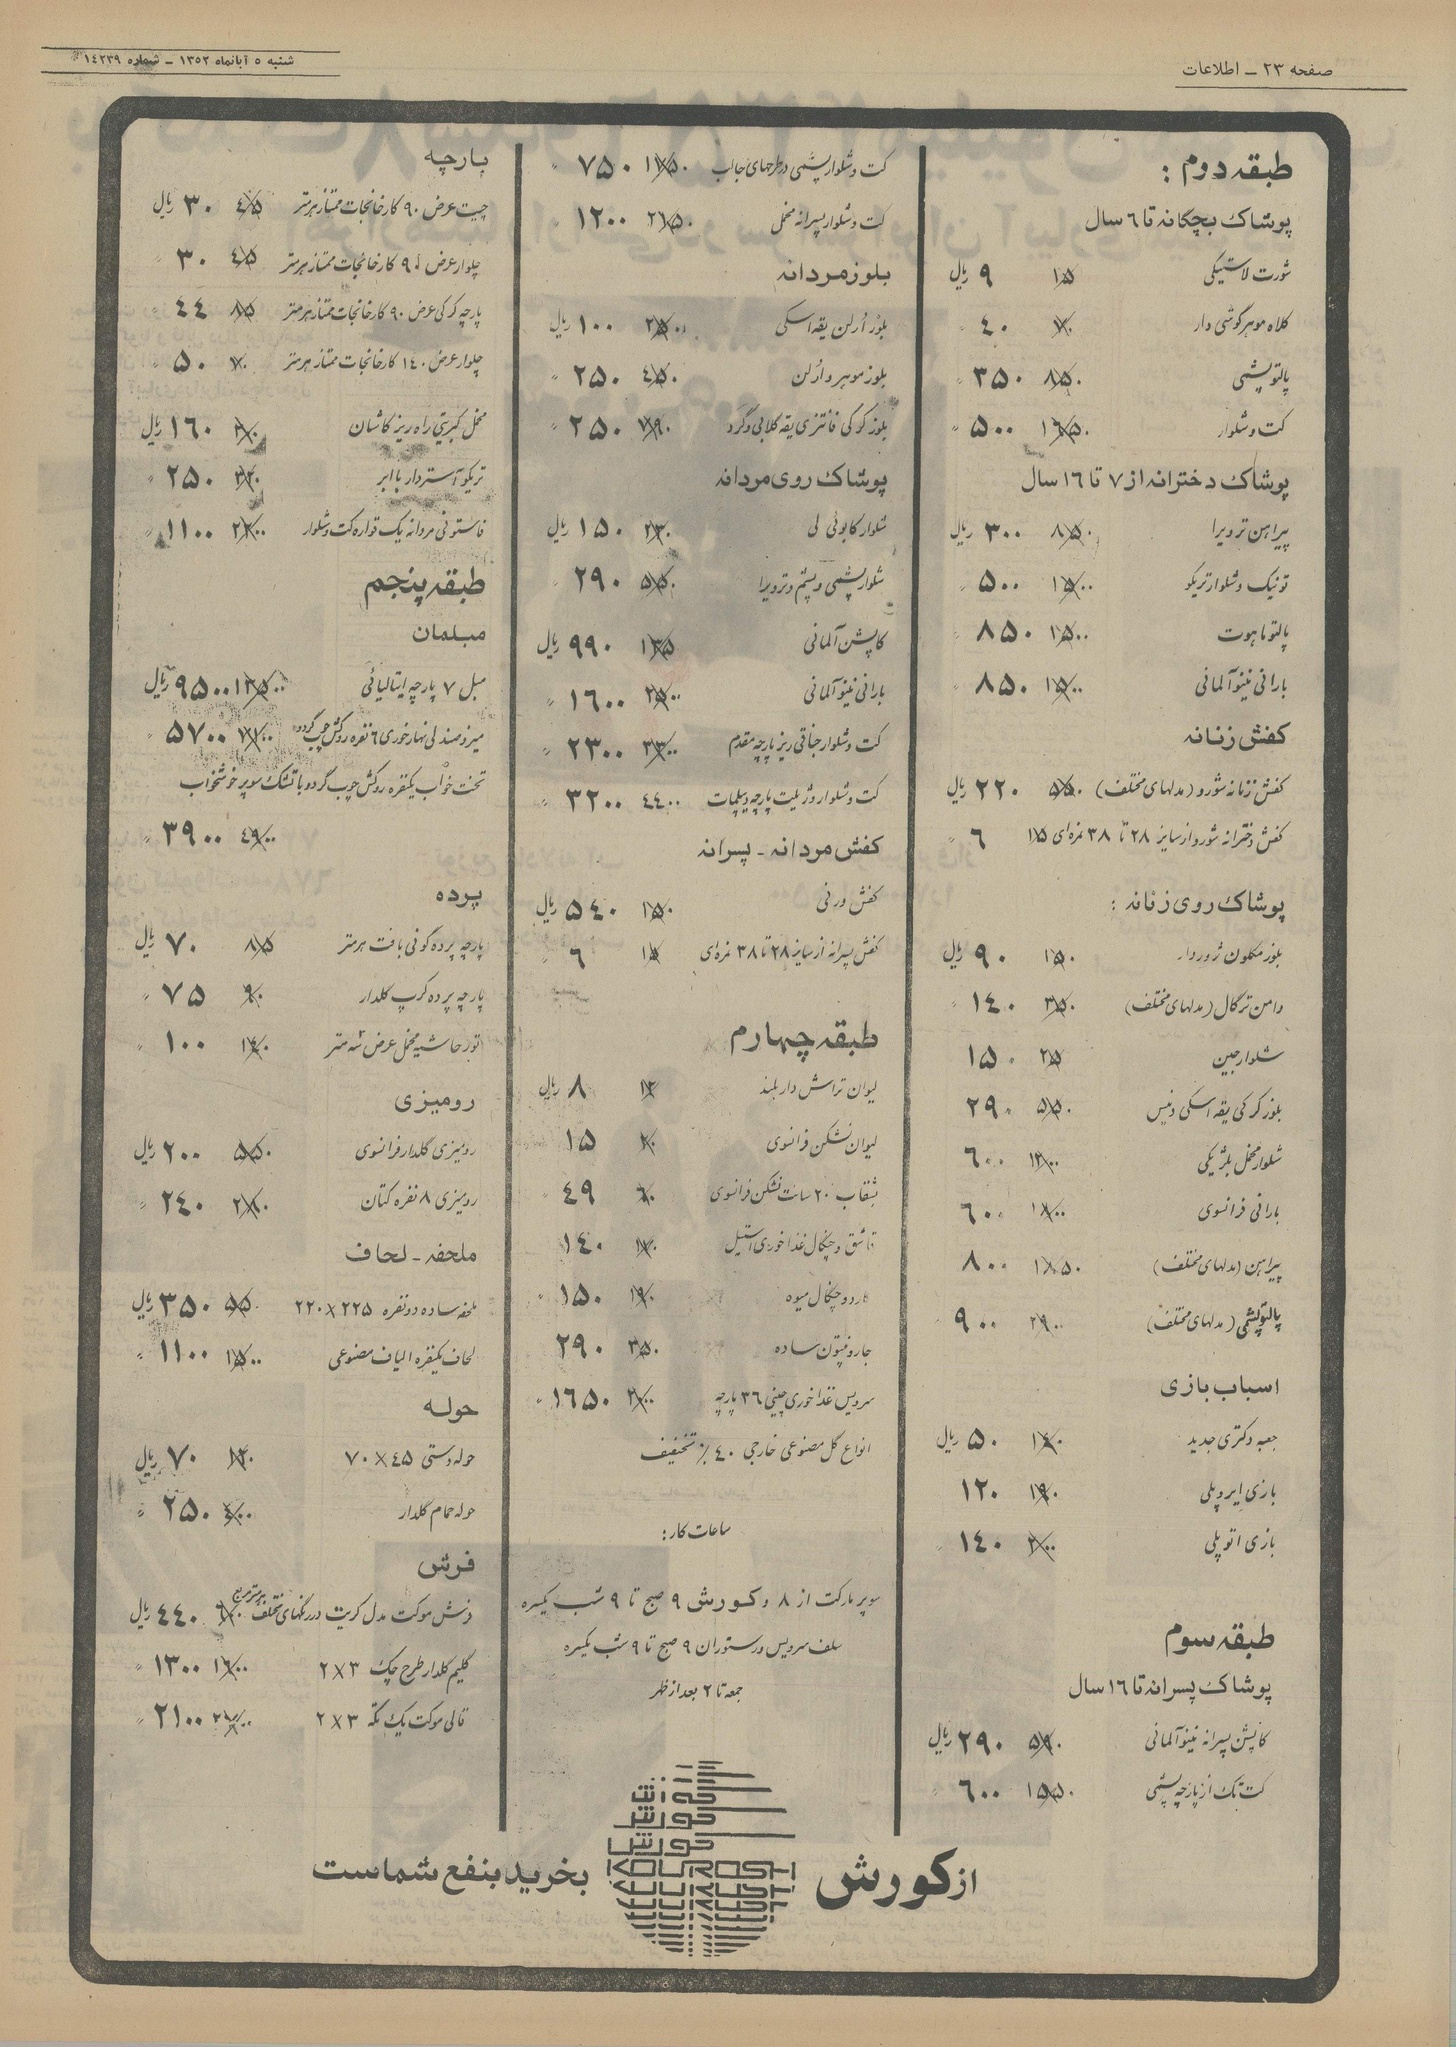 صفحه ۲۳ ـ اطلاعات
شنبه ۵ آبانماه ۱۳۵۲ ـ شماره ۱۴۲۳۹
طبقه دوم :
پوشاک بچگانه تا ۶ سال
شورت لاستیکی ۱۵ ۹ ریال
کلاه موهر گوشی دار ۴۰ «
پالتو پشمی ۸۵۰ ۳۵۰ «
کت و شلوار ۱۶۵۰ ۵۰۰ «
پوشاک دخترانه از ۷ تا ۱۶ سال
پیراهن ترویرا ۸۵۰ ۳۰۰ ریال
تونیک و شلوار تریکو ۱۵۰۰ ۵۰۰ «
پالتو ماهوت ۱۵۰۰ ۸۵۰ «
بارانی نینو آلمانی ۱۵۰۰ ۸۵۰ «
کفش زنانه
کفش زنانه شورو (مدلهای مختلف) ۵۵۰ ۲۲۰ ریال
کفش دخترانه شورو از سایز ۲۸ تا ۳۸ نمره‌ای ۱۵ ۶ «
پوشاک روی زنانه :
بلوز مکلون ژوردار ۱۵۰ ۹۰ ریال
دامن ترگال (مدلهای مختلف) ۳۵۰ ۱۴۰ «
شلوار جین ۱۵۰
بلوز کرکی یقه اسکی ونیس ۵۵۰ ۲۹۰
شلوار مخمل بلژیکی ۱۲۰۰ ۶۰۰
بارانی فرانسوی ۱۸۰۰ ۶۰۰
پیراهن (مدلهای مختلف) ۱۸۵۰ ۸۰۰
پالتو پشمی (مدلهای مختلف) ۲۹۰۰ ۹۰۰ «
اسباب بازی
جعبه دکتری جدید ۱۴۰ ۵۰ ریال
بازی ایروپلی ۱۹۰ ۱۲۰
بازی اتوپلی ۱۴۰ «
طبقه سوم
پوشاک پسرانه تا ۱۶ سال
کاپشن پسرانه نینو آلمانی ۵۹۰ ۲۹۰ ریال
کت تک از پارچه پشمی ۱۵۵۰ ۶۰۰ «
کت و شلوار پشمی در طرحهای جالب ۷۵۰ «
کت و شلوار پسرانه مخمل ۲۱۵۰ ۱۲۰۰ «
بلوز مردانه
بلوز ارلن یقه اسکی ۱۰۰ ریال
بلوز موهر و ارلن ۴۵۰ ۲۵۰ «
بلوز کوکی فانتزی یقه گلابی و گرد ۲۵۰ «
پوشاک روی مردانه
شلوار کابوئی لی ۲۳۰ ۱۵۰ ریال
شلوار پشمی و پشم و ترویرا ۵۵۰ ۲۹۰ «
کاپشن آلمانی ۹۹۰ ریال
بارانی نینو آلمانی ۲۵۰۰ ۱۶۰۰ «
کت و شلوار جناقی ریز پارچه مقدم ۳۳۰۰ ۲۳۰۰ «
کت و شلوار و ژیلت پارچه دیپلمات ۴۴۰۰ ۳۲۰۰ «
کفش مردانه ـ پسرانه
کفش ورنی ۵۴۰ ریال
کفش پسرانه از سایز ۲۸ تا ۳۸ نمره‌ای ۱۵ ۶ «
طبقه چهارم
لیوان تراش دار بلند ۱۲ ۸ ریال
لیوان نشکن فرانسوی ۲۰ ۱۵ «
بشقاب ۲۰ سانت نشکن فرانسوی ۶۰ ۴۹ «
قاشق و چنگال غذاخوری استیل ۱۴۰ «
کارد و چنگال میوه ۱۹۰ ۱۵۰ «
جارو فنتون ساده ۳۵۰ ۲۹۰ «
سرویس غذاخوری چینی ۳۶ پارچه ۱۶۵۰ «
انواع گل مصنوعی خارجی ۴۰ ٪ تخفیف
ساعات کار :
سوپر مارکت از ۸ و کورش ۹ صبح تا ۹ شب یکسره
سلف سرویس و رستوران ۹ صبح تا ۹ شب یکسره
جمعه تا ۲ بعد از ظهر
پارچه
چیت عرض ۹۰ کارخانجات ممتاز هر متر ۴۵ ۳۰ ریال
چلوار عرض ۹۰ کارخانجات ممتاز هر متر ۴۵ ۳۰ «
پارچه کرکی عرض ۹۰ کارخانجات ممتاز هر متر ۸۵ ۴۴ «
چلوار عرض ۱۴۰ کارخانجات ممتاز هر متر ۷۰ ۵۰ «
مخمل کبریتی راه ریز کاشان ۱۶۰ ریال
تریکو آستردار با ابر ۳۲۰ ۲۵۰ «
فاستونی مردانه یک قواره کت و شلوار ۱۱۰۰ «
طبقه پنجم
مبلمان
مبل ۷ پارچه ایتالیائی ۹۵۰۰ ریال
میز و صندلی نهارخوری ۶ نفره روکش چوب گردو ۵۷۰۰ «
تخت خواب یکنفره روکش چوب گردو با تشک سوپر خوشخواب
۴۹۰۰ ۳۹۰۰ «
پرده
پارچه پرده گونی بافت هر متر ۸۵ ۷۰ ریال
پارچه پرده کرپ گلدار ۹۰ ۷۵ «
تور حاشیه مخمل عرض سه متر ۱۰۰ «
رومیزی
رومیزی گلدار فرانسوی ۲۰۰ ریال
رومیزی ۸ نفره کتان ۲۴۰ «
ملحفه ـ لحاف
ملحفه ساده دو نفره ۲۲۵×۲۲۰ ۳۵۰ ریال
لحاف یکنفره الیاف مصنوعی ۱۵۰۰ ۱۱۰۰ «
حوله
حوله دستی ۴۵×۷۰ ۱۲۰ ۷۰ ریال
حوله حمام گلدار ۴۰۰ ۲۵۰ «
فرش
فرش موکت مدل کریت در رنگهای مختلف هر متر مربع ۴۴۰ ریال
گلیم گلدار طرح چک ۳×۲ ۱۶۰۰ ۱۳۰۰ «
قالی موکت یک تکه ۳×۲ ۲۸۰۰ ۲۱۰۰ «
کورش
کورش
کورش
KOUROSH
از کورش بخرید بنفع شماست